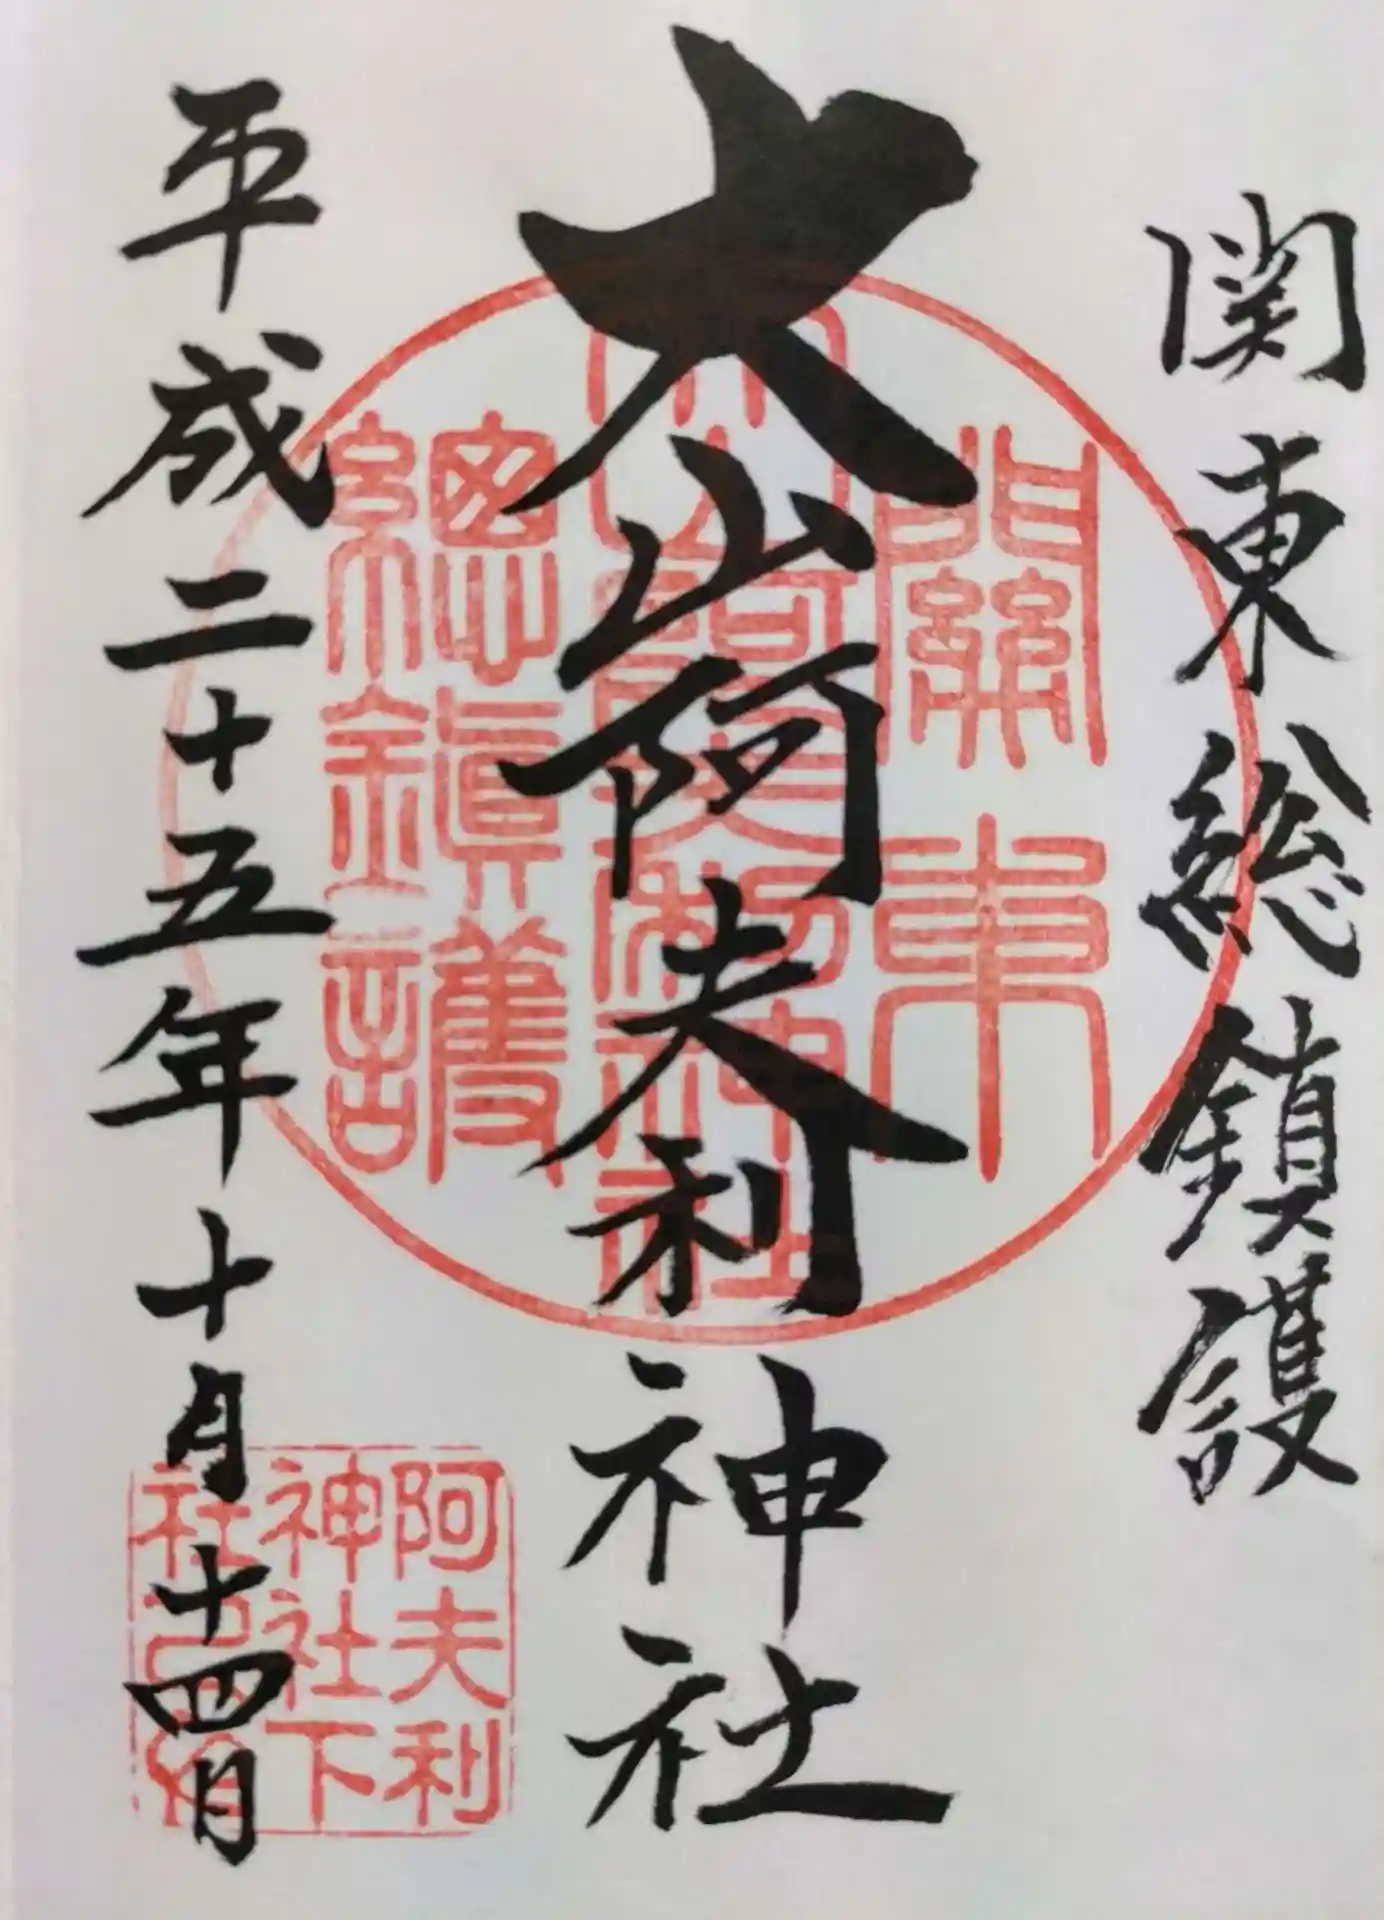 関東総鎮護
大山阿夫利神社
平成二十五年十月十四日
關東
大山阿夫利神社
總鎭護
阿夫利
神社下
社之印